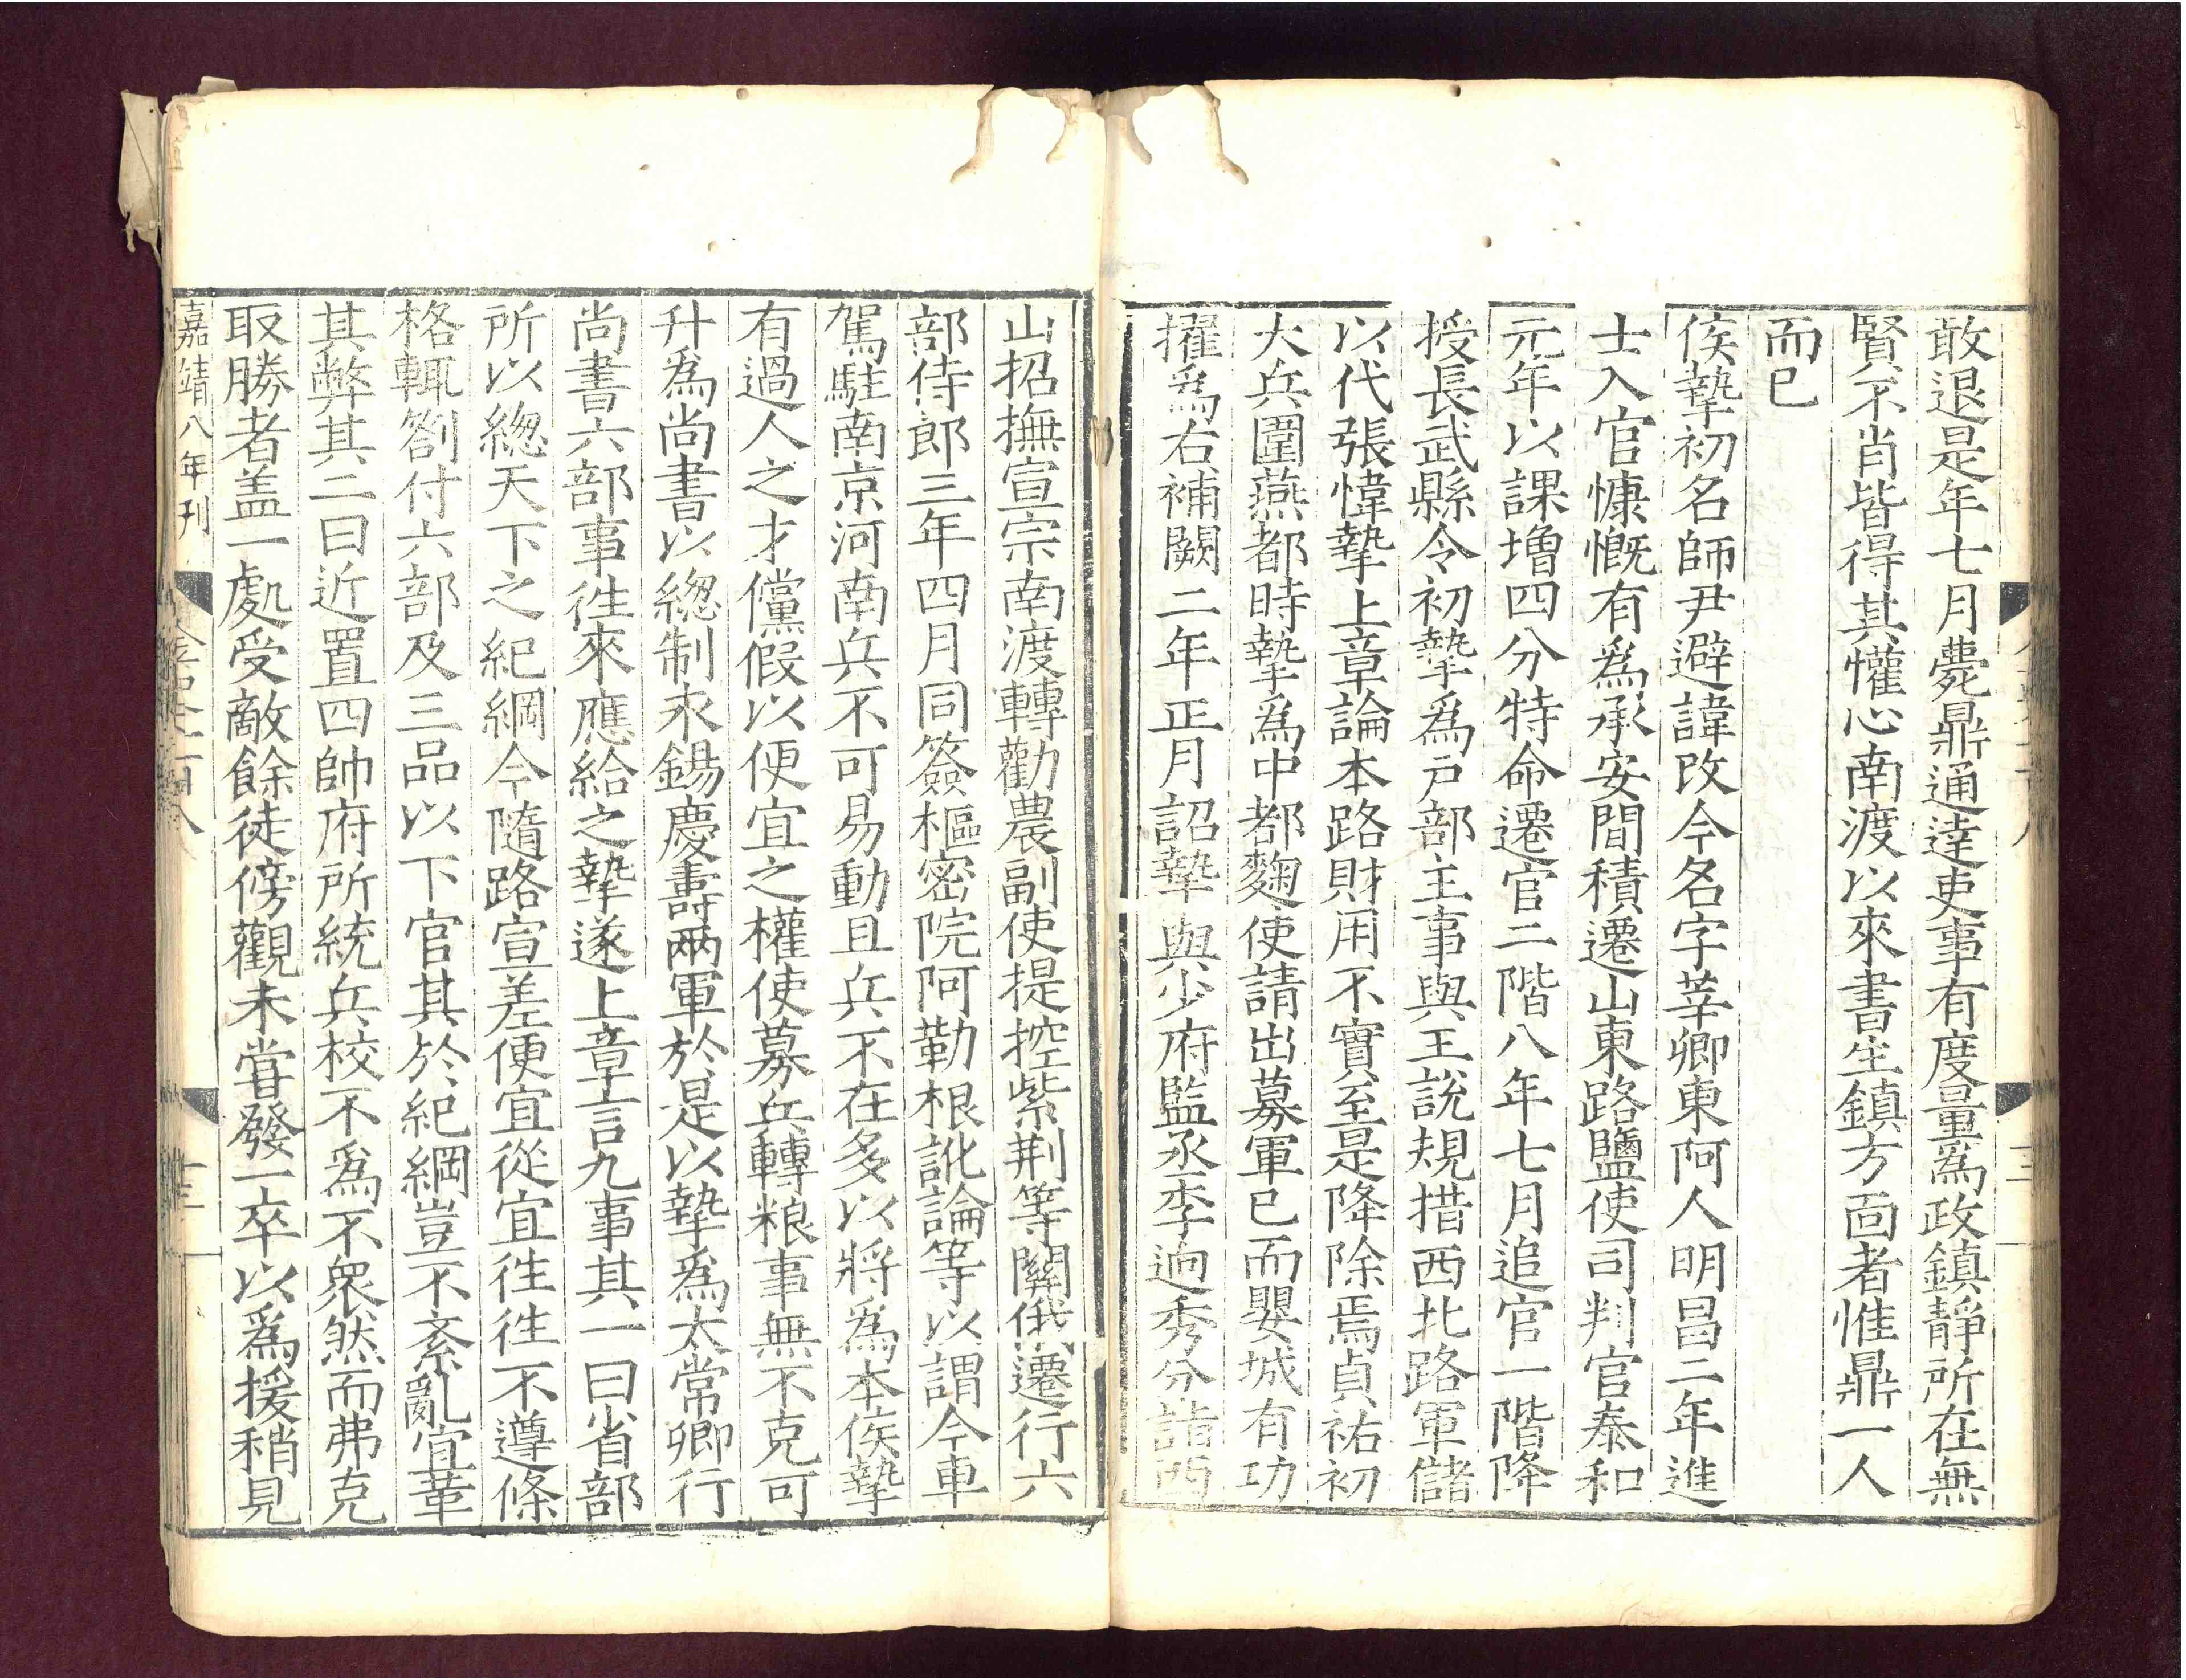 敢退是年七月薨鼎通達吏事有度量爲政鎮靜所在無
賢不肖皆得其懽心南渡以來書生鎮方面者惟鼎一人
而已
侯摯初名師尹避諱改今名字莘卿東阿人明昌二年進
士入官慷慨有爲承安間積遷山東路鹽使司判官泰和
元年以課增四分特命遷官二階八年七月追官一階降
授長武縣令初摯爲戸部主事與王說規措西北路軍儲
以代張煒摯上章論本路財用不實至是降除焉貞祐初
大兵圍燕都時摯爲中都麴使請出募軍已而嬰城有功
擢爲右補闕二年正月詔摯與少府監丞李逈秀分詣西
山招撫宣宗南渡轉勸農副使提控紫荆等關俄遷行六
部侍郎三年四月同簽樞密院阿勒根訛論等以謂今車
駕駐南京河南兵不可易動且兵不在多以將爲本侯摯
有過人之才儻假以便宜之權使募兵轉粮事無不克可
升爲尚書以緫制永錫慶壽兩軍於是以摯爲太常卿行
尚書六部事徃來應給之摯遂上章言九事其一曰省部
所以緫天下之紀綱今隨路宣差便宜從宜徃徃不遵條
格輒劄付六部及三品以下官其於紀綱豈不紊亂宜革
其弊其二曰近置四帥府所統兵校不爲不衆然而弗克
取勝者盖一處受敵餘徒傍觀未甞發一卒以爲援稍見
嘉靖八年刊
金史一百八
十三